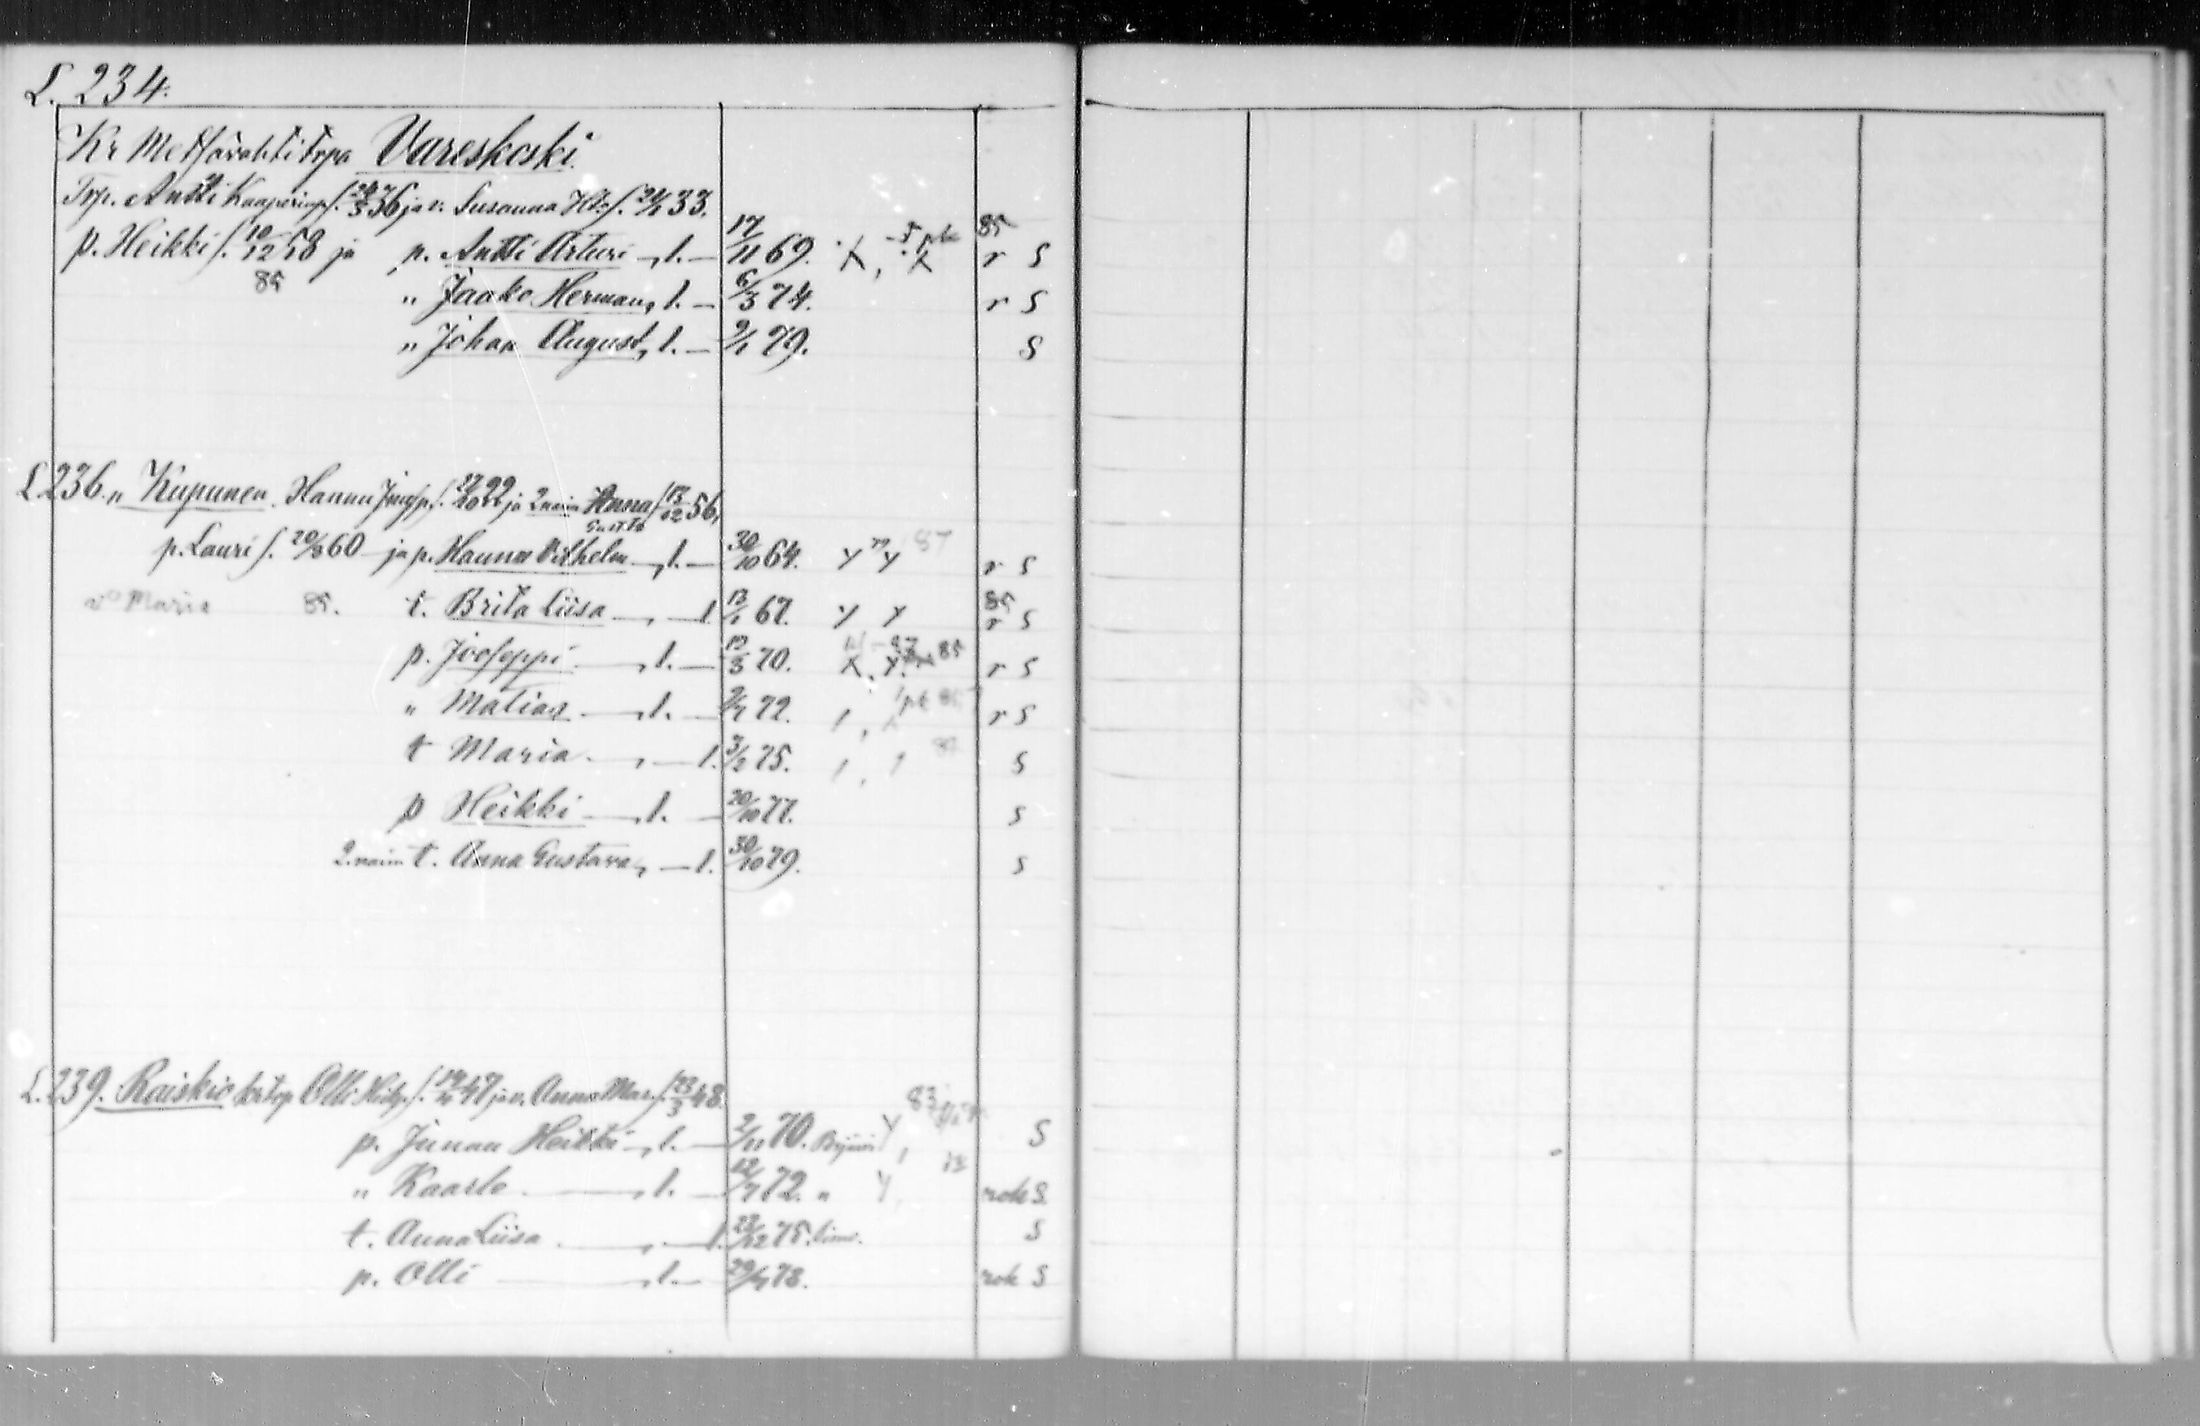 L. 234.
Kr Metsävahti trpa Vareskoski.
Trp. Antti Kaaperinp. s. 24/3 36 ja v. Susanna Ht. s. 24/1 33.
p. Heikki s. 10/12 58 ja p. Antti Arturi l. 17/11 69. X, X 85 r S
85 " Jaako Herman, l. 6/3 74. r S
" Johan August, l. 9/1 79. S
L 236. " Kupunen. Hannu s. 27/10 22 ja 2 naim Anna s. 13/12 56,
p. Lauri s. 20/8 60 ja p. Hannu Vilhelm l. 30/10 64. y y 87 r S
vo Maria 85. t. Brita Liisa l. 13/1 67. y y 85 r S
p. Jooseppi l. 19/3 70. X, y. 85 r S
" Matias l. 2/7 72. 85 r S
t Maria l. 3/2 75. S
p Heikki l. 20/10 77. S
2. naim t. Anna Gustava, l. 30/10 79. S
L. 239. Raiskio Olli s. 47 ja v. Anna Mar. s. 23/3 48.
p. Junnu Heikki l. 2/11 70. y 83 S
" Kaarlo l. 12/7 72. " y rok S.
t. Anna Liisa l. 23/12 75. S
p. Olli l. 29/7 78. rok S